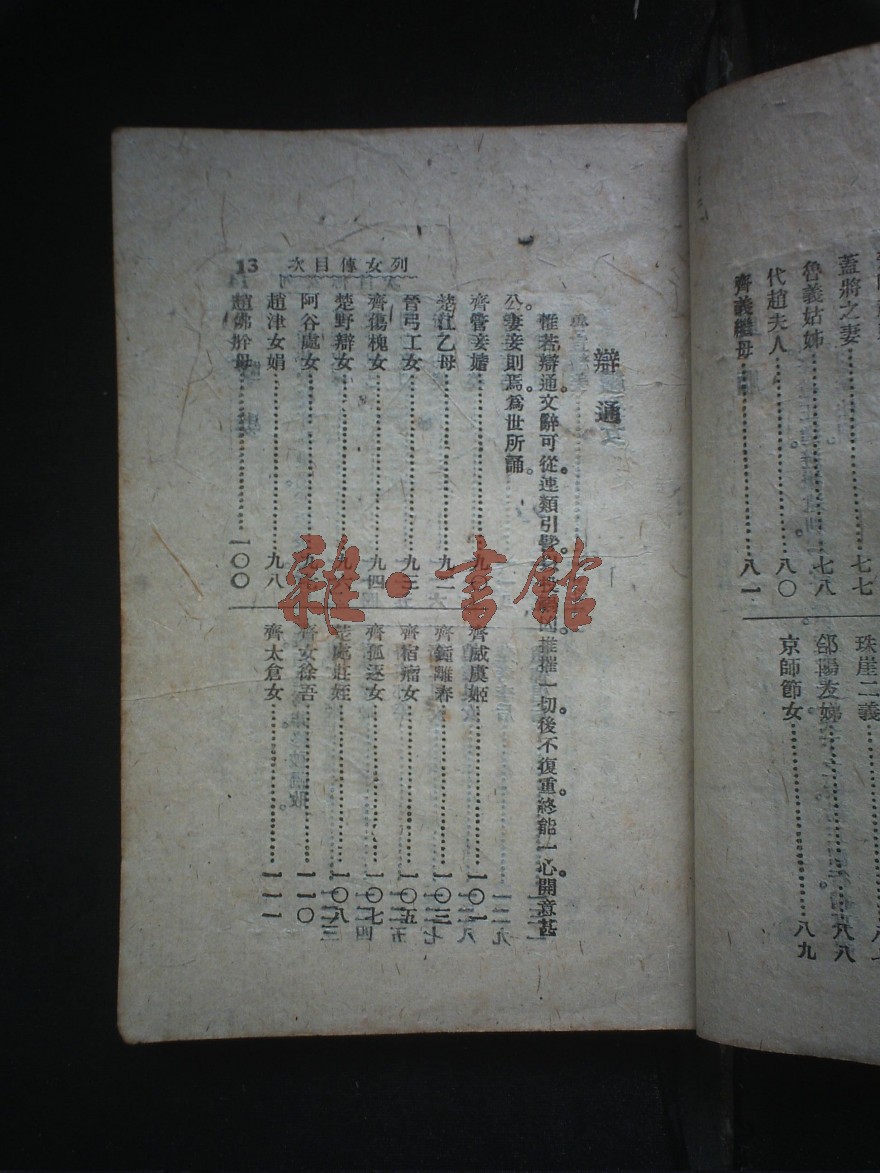 蓋將之妻……七七
魯義姑姊……七八
代趙夫人……八〇
齊義繼母……八一
珠崖二義
郃陽友娣……八八
京師節女……八九
列女傳目次 13
辯通
惟若辯通。文辭可從。連類引譬。推摧一切。後不復重。終能一心。開意甚
公。妻妾則焉。爲世所誦。
齊管妾婧……九〇
楚江乙母……九一
晉弓工女……九三
齊傷槐女……九四
楚野辯女……九六
阿谷處女
趙津女娟……九八
趙佛肸母……一〇〇
齊威虞姬……一〇一
齊鍾離春……一〇三
齊宿瘤女……一〇五
齊孤逐女……一〇七
楚處莊姪……一〇八
齊女徐吾……一一〇
齊太倉女……一一一
雜·書館